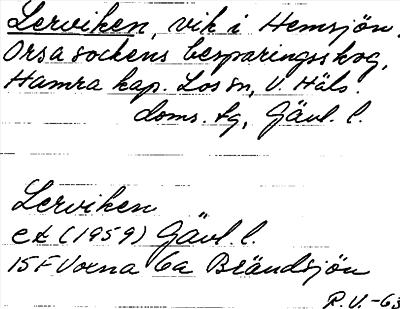 Lerviken, vik i Hemsjön,
Orsa sockens besparingsskog,
Hamra kap. Los sn, V. Häls.
doms. tg, Gävl. l.
Lerviken
ek (1959) Gävl. l.
15F Voxna 6a Brändsjön
R.U. -63